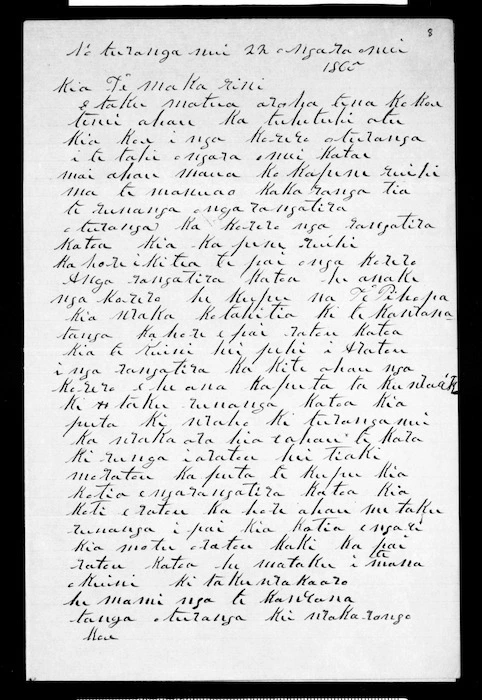 8
No turanga nui 22 ongara omei
1865
Kia Te maka rini
e taku matua aroha tena ko koe
tenei ahau ka tuhituhi atu
Kia koe i nga korero oturanga
i te tahi ongara omei katae
mai ahau maua ko kapene ruihi
ma te manuao kaka ranga tia
te runanga onga rangatira
oturanga ka korero nga rangatira
katoa kia ka pene ruihi
ka hore i kitea te pai onga korero
Anga rangatira katoa he anake
nga korero he kupu na Te Pihopa
kia waka kotahitia ki te kawana
tanga kahore e pai ratou katoa
kia te kuini hei pehi i Aratou
i nga rangatira ka kite ahau nga
korero e he ana kaputa ta ku
ki taku runanga katoa kia
puta ki waho ki turanga nui
ka waka ara hia e ahau te kara
ki runga iaratou hei tiaki
moratou ka puta te kupu kia
kotia e ngarangatira katoa kia
koti e ratou ka hore ahau me taku
runanga i pai kia kotia engari
kia motu oratou kaki ka pai
ratou katoa he mataku i te mana
okuini ki taku wakaaro
he mami nga te kawana
tanga oturanga kei waka rongo
koe